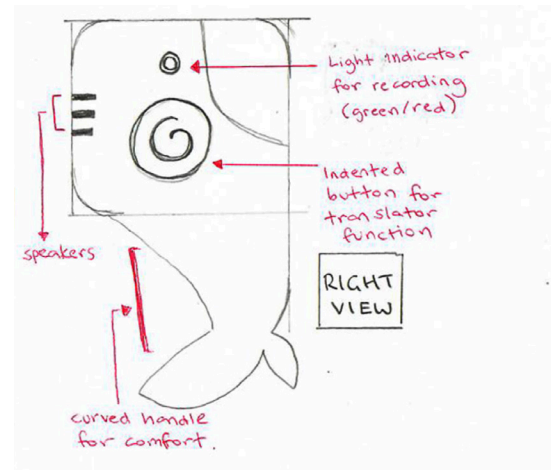 Light indicator
for recording
(green/red)
Indented
button for
translator
function
speakers
RIGHT
VIEW
curved handle
for comfort.